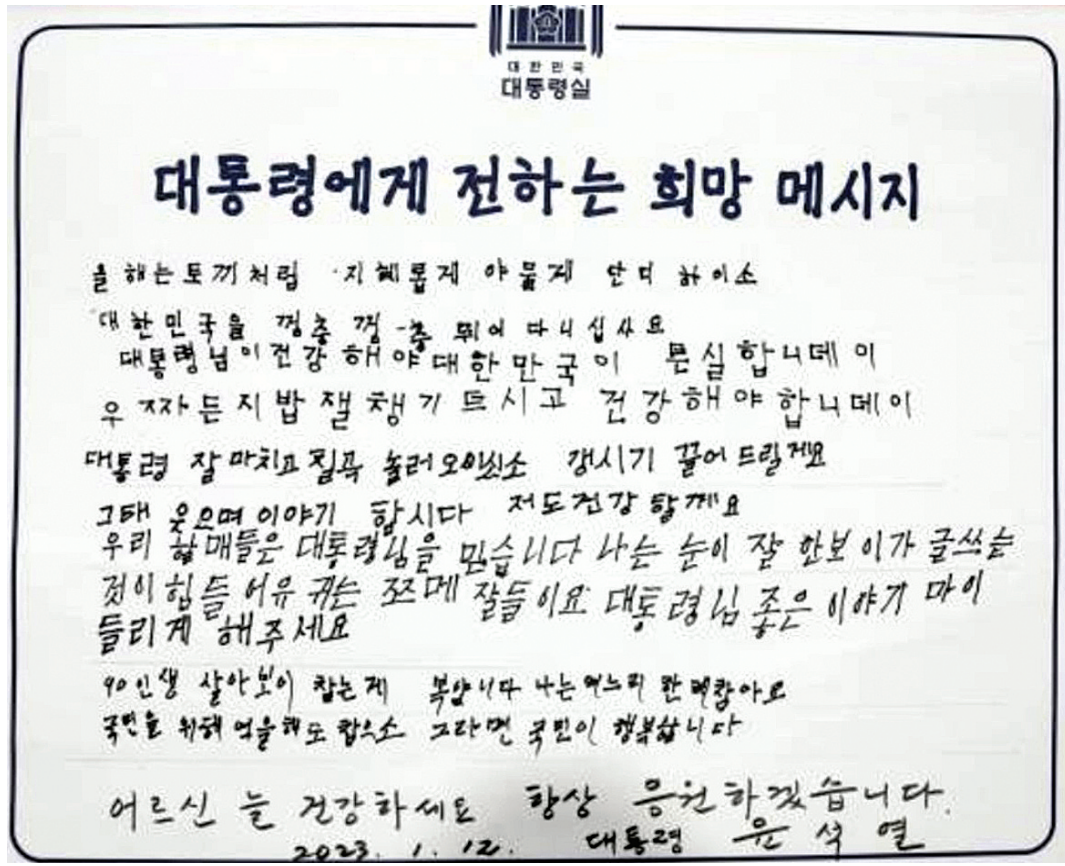 대한민국
대통령실
대통령에게 전하는 희망 메시지
올해는토끼처럼 지혜롭게 야물게 단디 하이소
대한민국을 껑충 껑충 뛰어 다니십시요
대통령님이건강해야대한민국이 튼실합니데이
우짜든지밥잘챙기드시고 건강해야합니데이
대통령 잘마치고 칠곡 놀러오이소 갱시기 끓여드릴게요
그때 웃으며이야기 합시다 저도건강 할께요
우리 할매들은 대통령님을 믿습니다 나는 눈이 잘 안보이가 글쓰는
것이힘들어유 귀는 쪼메 잘들이요 대통령님 좋은이야기 마이
들리게 해주세요
90인생 살아보이 참는게 복압니다 나는며느리 안 며랍아요
국민을 위해 억울해도 참으소 그라면 국민이 행복합니다
어르신 늘 건강하세요 항상 응원하겠습니다.
2023. 1. 12. 대통령 윤석열